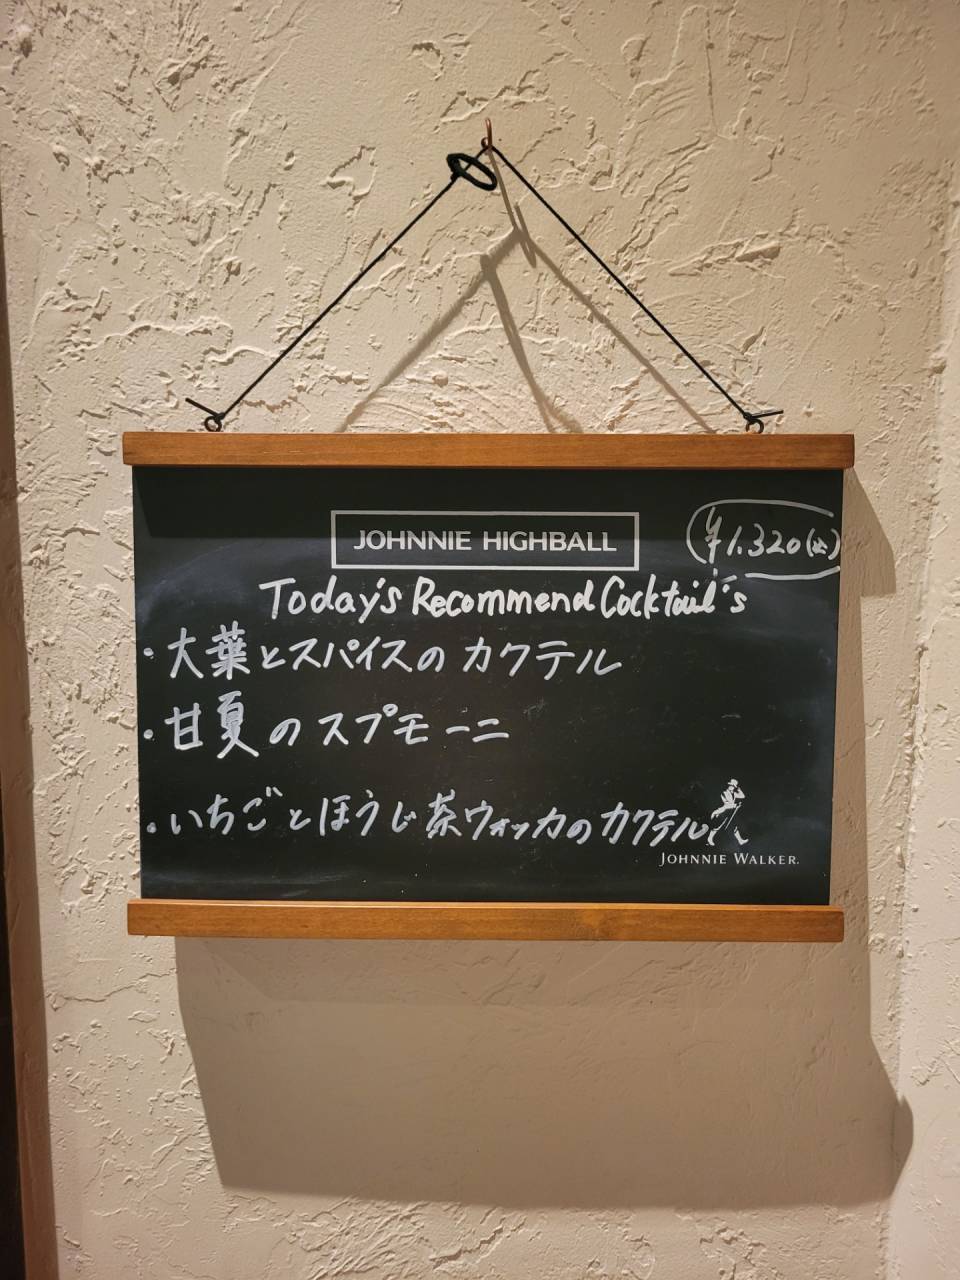 JOHNNIE HIGHBALL
¥1.320(込)
Today's Recommend Cocktail's
・大葉とスパイスのカクテル
・甘夏のスプモーニ
・いちごとほうじ茶ウォッカのカクテル
JOHNNIE WALKER.